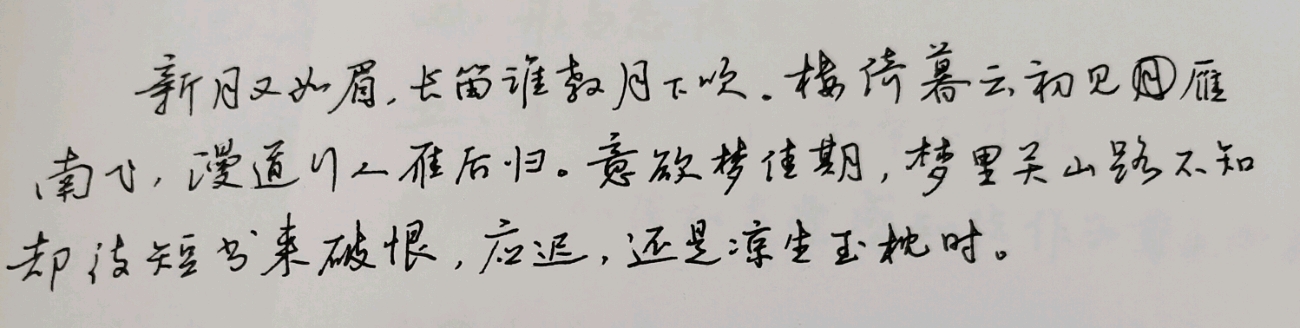 新月又如眉,长笛谁教月下吹。楼倚暮云初见雁
南飞,漫道行人雁后归。意欲梦佳期,梦里关山路不知
却待短书来破恨,应迟,还是凉生玉枕时。